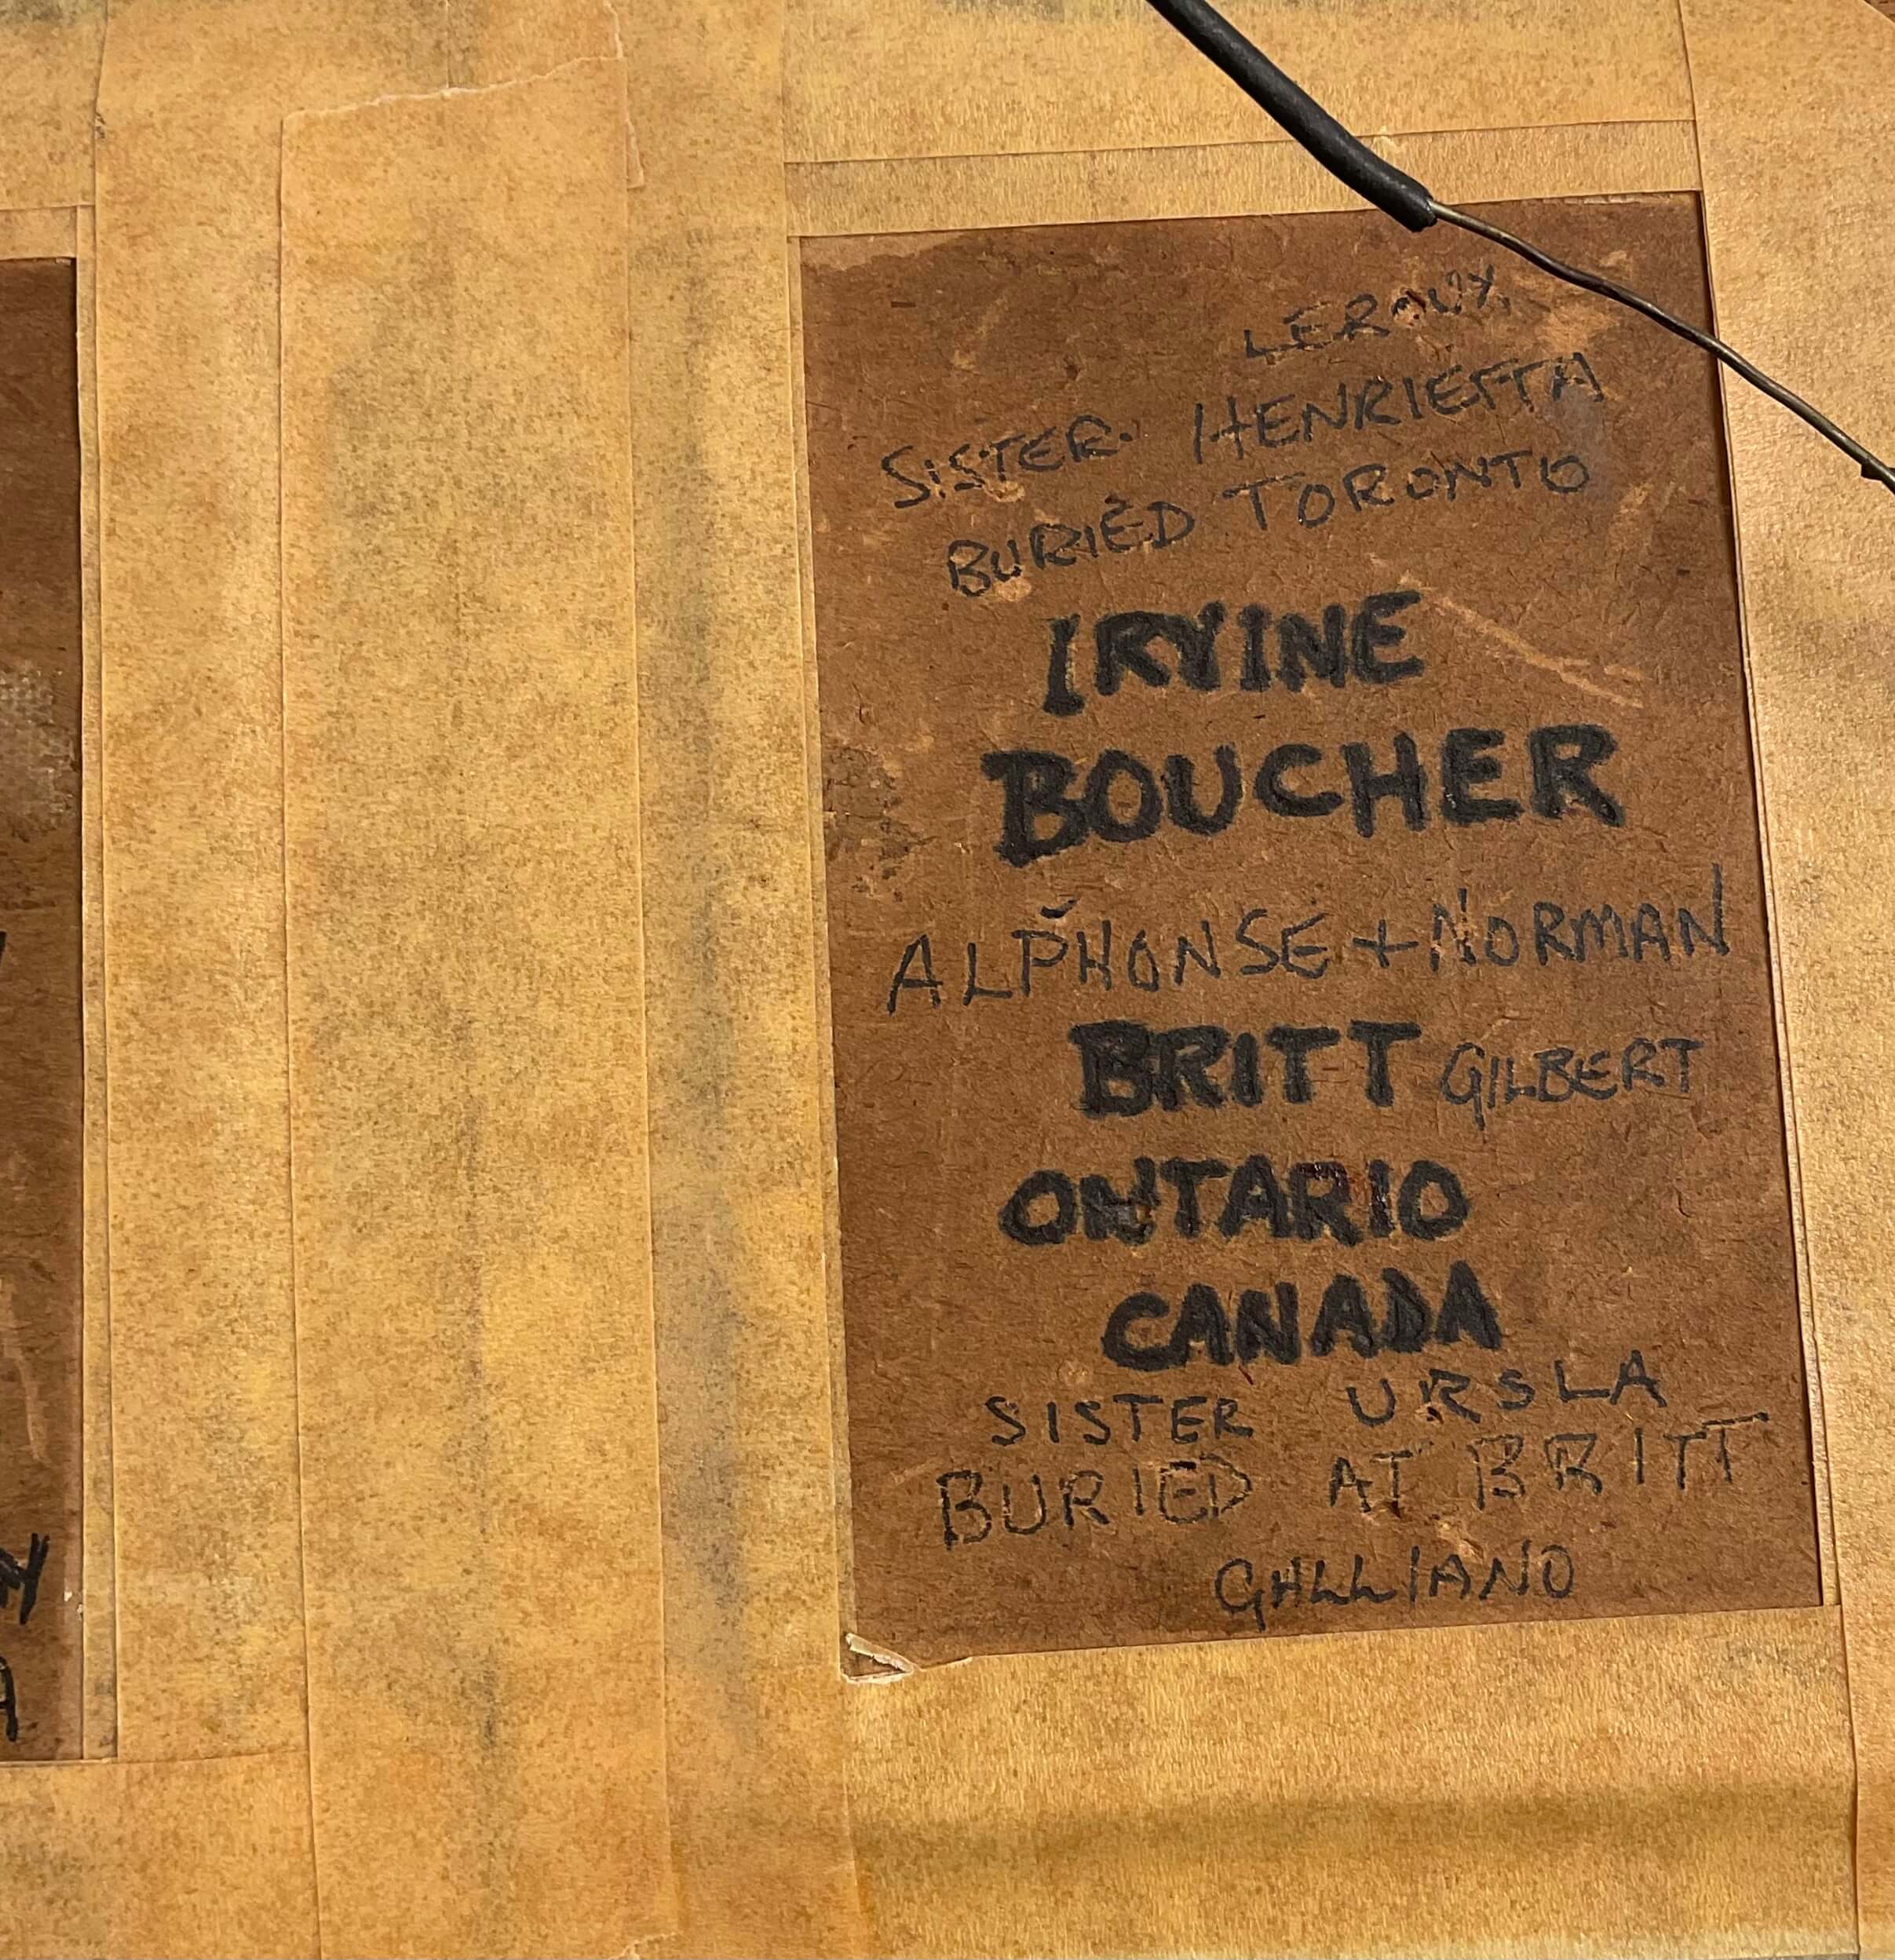 LEROUX
SISTER. HENRIETTA
BURIED TORONTO
IRVINE
BOUCHER
ALPHONSE + NORMAN
BRITT GILBERT
ONTARIO
CANADA
SISTER URSLA
BURIED AT BRITT
GALLIANO